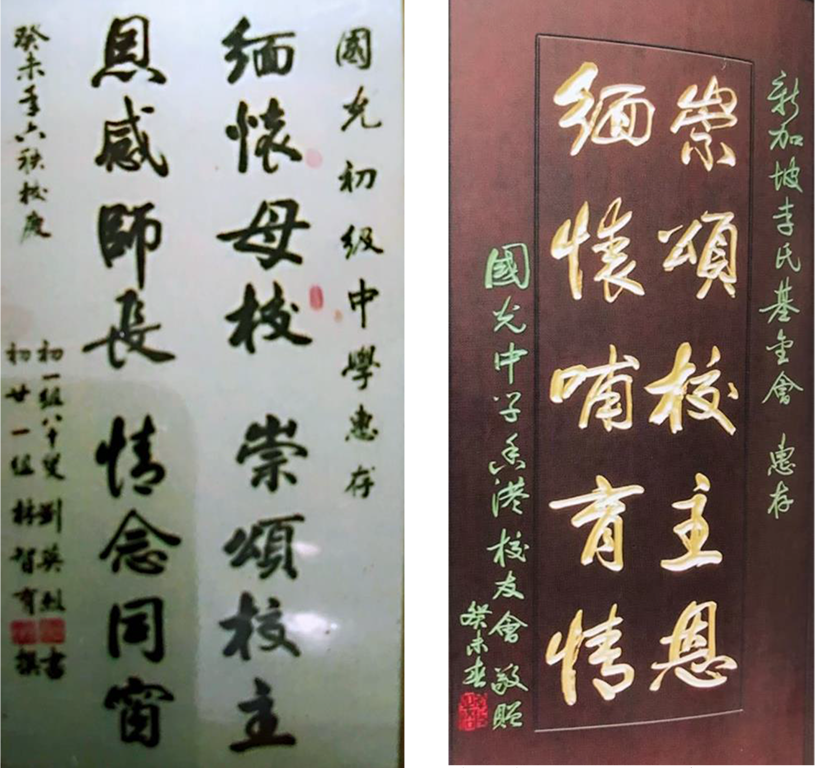 國光初級中學惠存
緬懷母校 崇頌校主
恩感師長 情念同窗
癸未年六秩校慶
初一組八十叟劉英 書
初廿一組林智育 撰
新加坡李氏基金會 惠存
崇頌校主恩
緬懷哺育情
國光中学香港校友會敬贈
癸未春